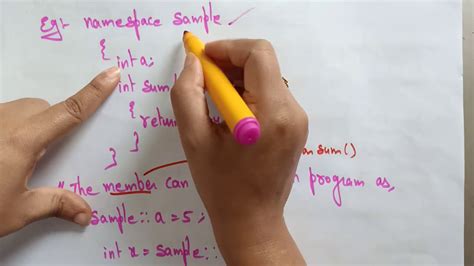 Eg:- namespace sample ✓
{
int a;
int sum
{
return
}
}
sum()
"The member can program as,
sample :: a = 5 ;
int x = sample ::